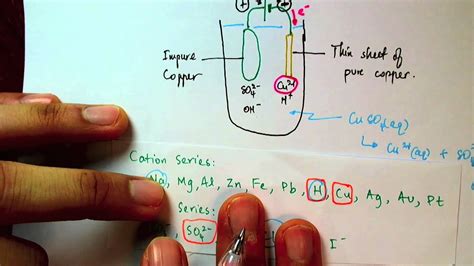 +
e⁻
Impure
Copper
Thin sheet of
pure copper.
SO₄²⁻
OH⁻
Cu²⁺
H⁺
CuSO₄(aq)
↳ Cu²⁺(aq) + SO
Cation Series:
Na, Mg, Al, Zn, Fe, Pb, H, Cu, Ag, Au, Pt
Series:
SO₄²⁻
I⁻